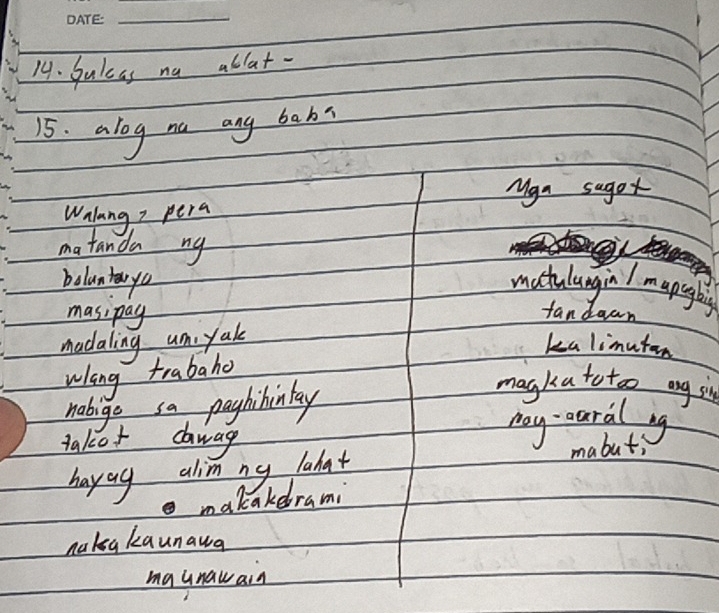 DATE:
14. bukas na aklat -
15. alog na ang baba
Walang pera
matanda ng
boluntaryo
masipag
madaling umiyak
wlang trabaho
nabigo sa paghihintay
takot dawag
hayag alim ng lahat
makakdrami
nakakaunawa
maunawain
Mga sagot
matulungin / mapagbig
tandaan
kalimutan
magkatotoo ang sin
nag-aaral ng
mabuti